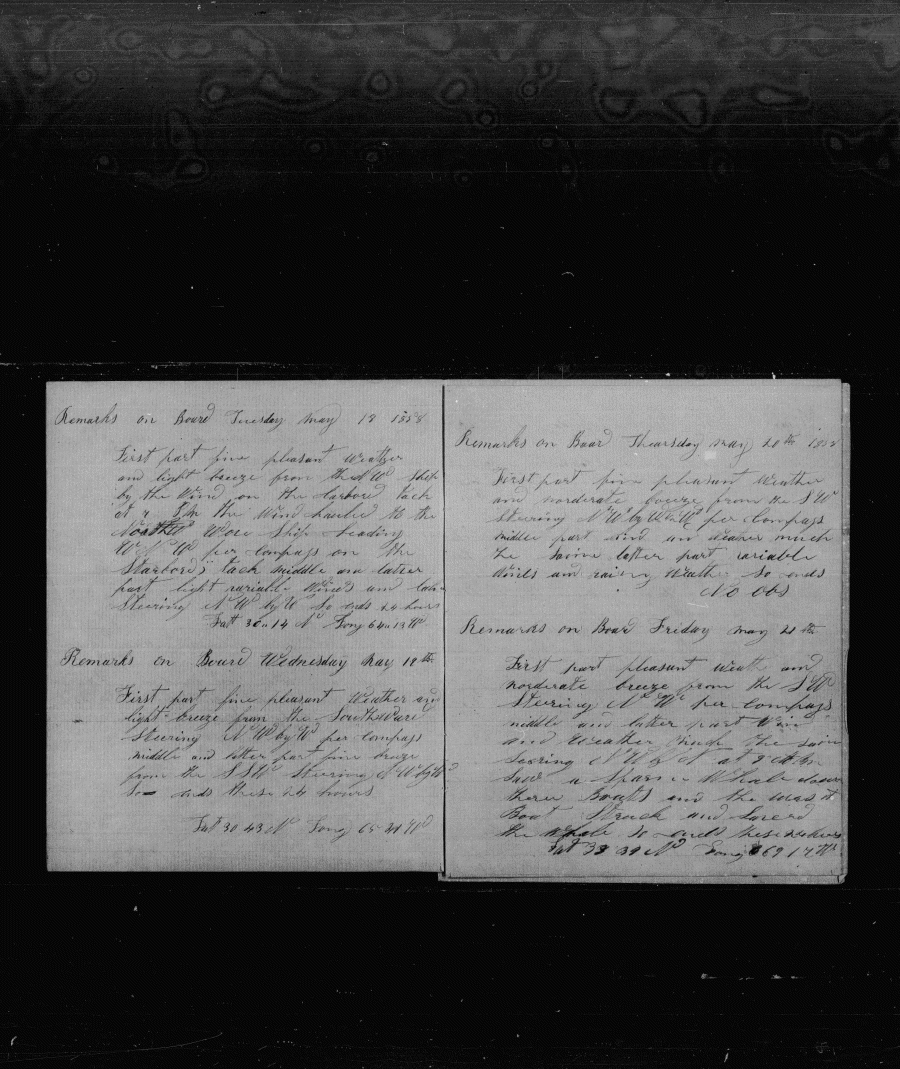 Remarks on Board Tuesday May 18 1858
First part fine pleasant weather
and light breeze from the NW Ship
by the Wind on the Larbord tack
at 4 P.M the Wind hauled to the
North Wore Ship heading
W N W per Compass on the
Starbord tack middle and latter
part light variable Winds and
Steering N W by W So ends 24 hours
Latt 30 14 N Long 64 13 W
Remarks on Board Wednesday May 19th
First part fine pleasant Weather and
light breeze from the Southward
Steering N W by W per Compass
middle and latter part fine breeze
from the S S W Steering N W by W
So ends these 24 hours
Latt 30 43 N Long 65 21 W
Remarks on Board Thearsday may 20th 1858
First part fine pleasant Weather
and moderate breeze from the S W
Steering N W by W per Compass
middle part wind and weather much
the same latter part variable
winds and rainy Weather So ends
No Obs
Remarks on Board Friday may 21th
First part pleasant Weath and
moderate breeze from the S W
Steering N W per Compass
middle and latter part Win
and Weather much the same
Steering N W by N at 9 A.M
Saw a Sparm Whale down
theree Boats and the wast
Boat Struck and Saved
the Whale So ends these 24 hours
Latt 33 39 N Long 69 17 W